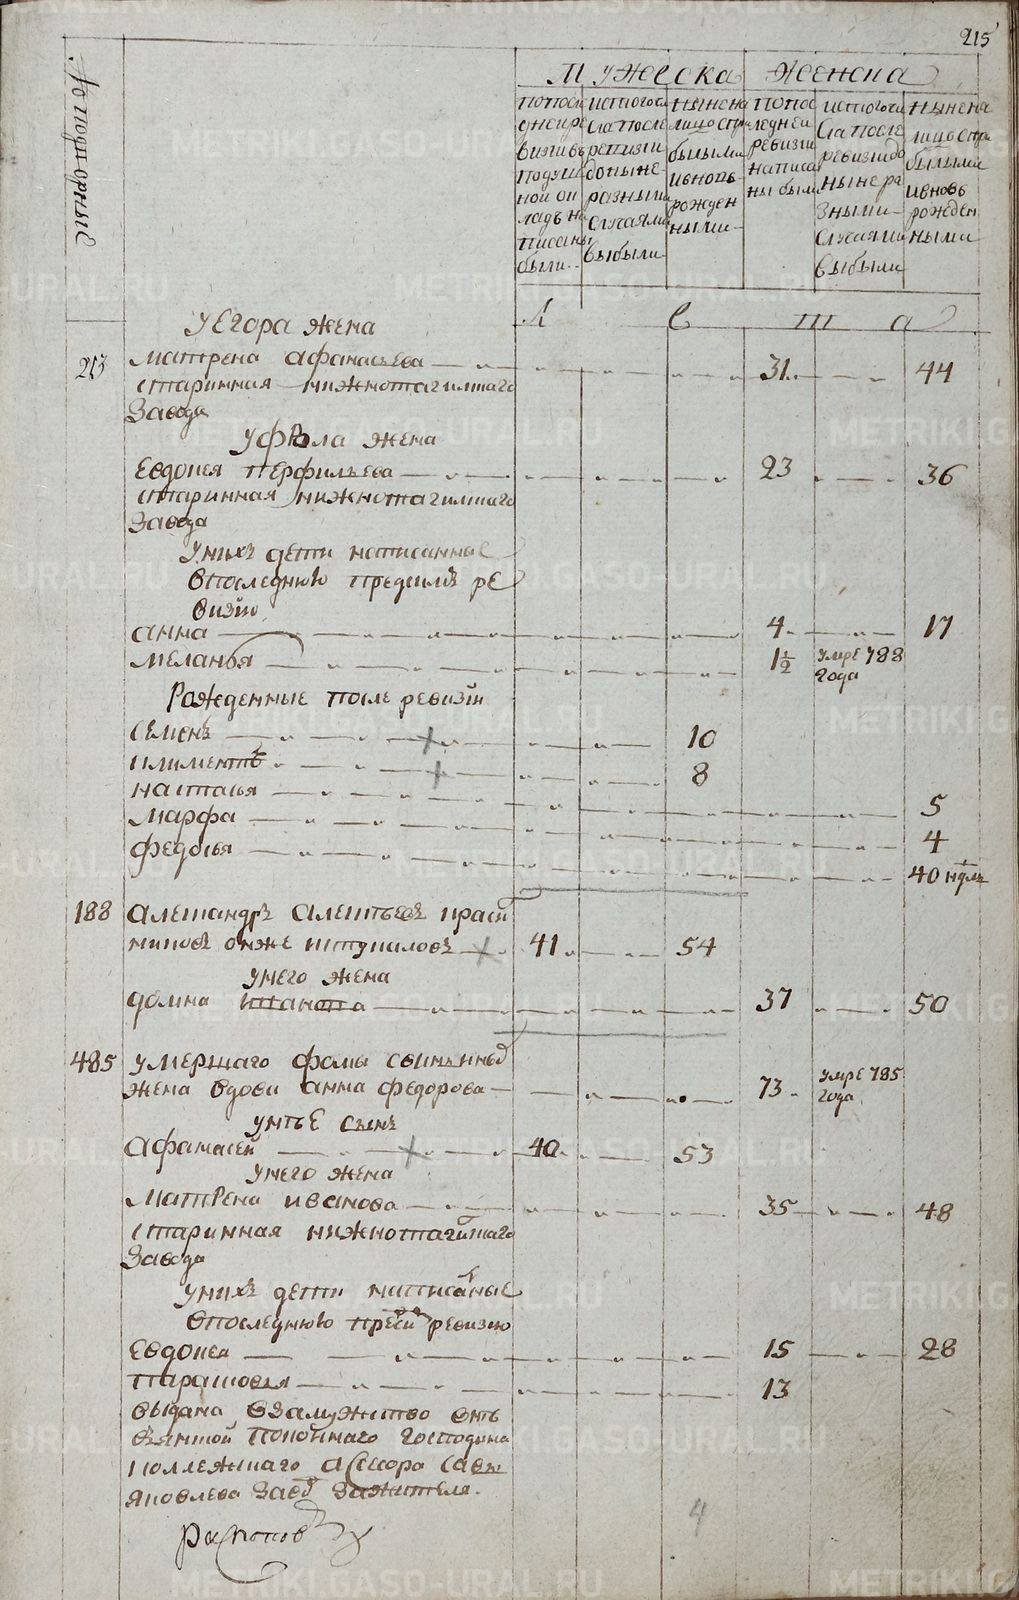 215
№ подворные
Мужеска Женска
по последней ревизии в подушной оклад написаны были
ис того числа после ревизии до ныне разными случаями выбыли
ныне на лицо с прибылыми и вновь рожденными
по последней ревизии написаны были
ис того числа после ревизии до ныне разными случаями выбыли
ныне на лицо с прибылыми и вновь рожденными
Л е т а
у Егора жена
213 Матрена Афанасьева 31 44
старинная нижнотагилскаго
завода
у Фрола жена
Евдокея Перфильева 23 36
старинная нижнотагилскаго
завода
у них дети написанные
в последнюю пред сим ре
визию
Анна 4 17
Меланья 1½ умре 788 года
Рожденные после ревизiи
Семен 10
Климентъ 8
Настасья 5
Марфа 4
Федосья 40 нѣдль
188 Александръ Алексѣевъ Краси
никовъ он же Ступаловъ 41 54
у него жена
Домна 37 50
485 умершаго Фомы
жена вдова Анна Федорова 73 умре 785 года
у ней сынъ
Афанасей 40 53
у него жена
Матрена Иванова 35 48
старинная нижнотагилскаго
завода
у них дети написанные
в последнюю пред сим ревизию
Евдокея 15 28
Парасковья 13
выдана в замужство
покойнаго господина
коллежскаго асессора Саввы
Яковлева завод жителя.
Распопов
4
METRIKI.GASO-URAL.RU